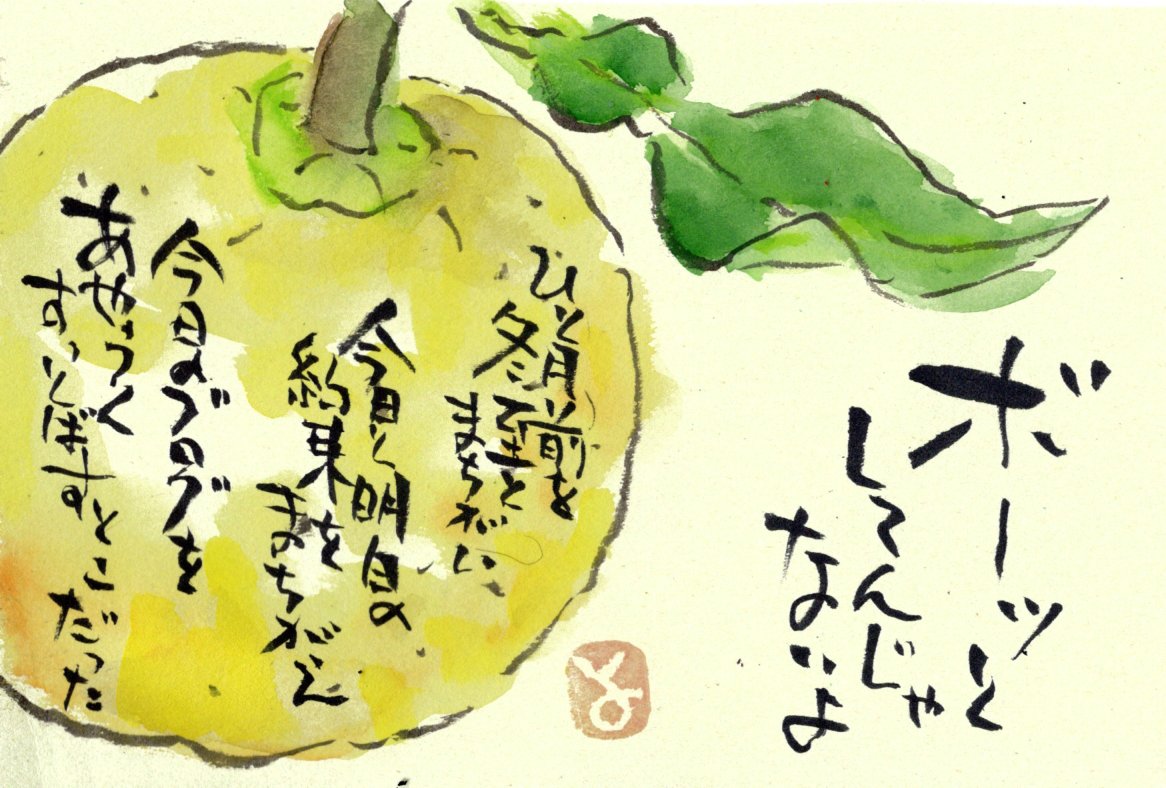 ボーッと
してんじゃ
ないよ
ひと月前を
冬至と
まちがい
今日と明日の
約束を
まちがえ
今日のブログを
あやうく
すっとばすとこだった